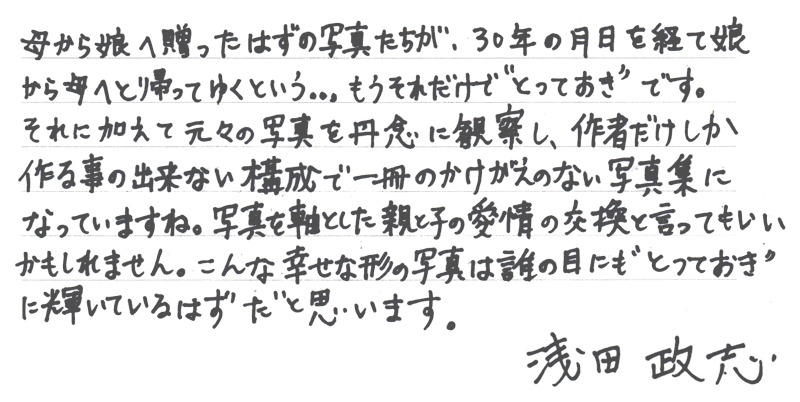 母から娘へ贈ったはずの写真たちが、30年の月日を経て娘
から母へとり帰ってゆくという..., もうそれだけで“とっておき”です。
それに加えて元々の写真を丹念に観察し、作者だけしか
作る事の出来ない構成で一冊のかけがえのない写真集に
なっていますね。写真を軸とした親と子の愛情の交換と言ってもいい
かもしれません。こんな幸せな形の写真は誰の目にも“とっておき”
に輝いているはずだと思います。
浅田 政志